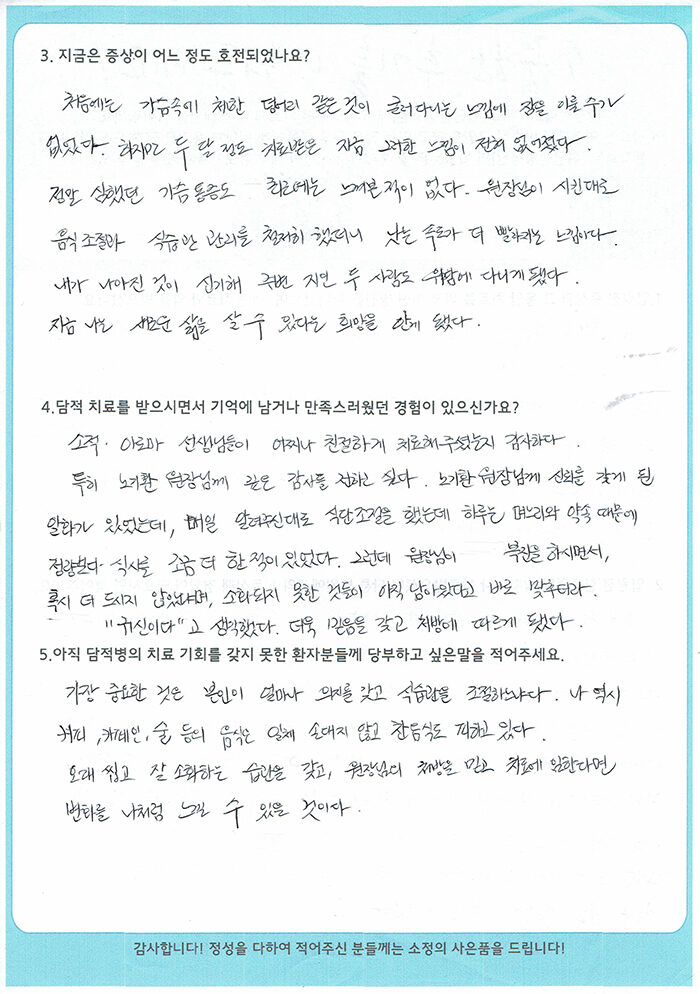 3. 지금은 증상이 어느 정도 호전되었나요?
처음에는 가슴속에 체한 덩어리 같은것이 굴러다니는 느낌에 잠을 이룰 수가
없었다. 하지만 두 달 정도 치료받은 지금 그러한 느낌이 전혀 없어졌다.
정말 심했던 가슴통증도 최근에는 느껴본적이 없다. 원장님이 시킨대로
음식조절과 식습관 관리를 철저히 했더니 낫는 속도가 더 빨라지는 느낌이다.
내가 나아진 것이 신기해 주변 지인 두 사람도 위담에 다니게 됐다.
지금 나는 새로운 삶을 살 수 있다는 희망을 안게 됐다.
4.담적 치료를 받으시면서 기억에 남거나 만족스러웠던 경험이 있으신가요?
소적·아로마 선생님들이 어찌나 친절하게 치료해주셨는지 감사하다.
특히 노기환 원장님께 깊은 감사를 전하고 싶다. 노기환 원장님께 신뢰를 갖게 된
일화가 있었는데, 매일 알려주신대로 식단조절을 했는데 하루는 며느리와 약속 때문에
정량보다 식사를 조금 더 한적이 있었다. 그런데 원장님이 복진을 하시면서,
혹시 더 드시지 않았냐며, 소화되지 못한 것들이 아직 남아있다고 바로 맞추더라.
"귀신이다"고 생각했다. 더욱 믿음을 갖고 처방에 따르게 됐다.
5.아직 담적병의 치료 기회를 갖지 못한 환자분들께 당부하고 싶은말을 적어주세요.
가장 중요한 것은 본인이 얼마나 의지를 갖고 식습관을 조절하느냐다. 나 역시
커피, 카페인, 술 등의 음식은 일체 손대지 않고 찬음식도 피하고 있다.
오래 씹고 잘 소화하는 습관을 갖고, 원장님의 처방을 믿고 치료에 임한다면
변화를 나처럼 느낄 수 있을 것이다.
감사합니다! 정성을 다하여 적어주신 분들께는 소정의 사은품을 드립니다!